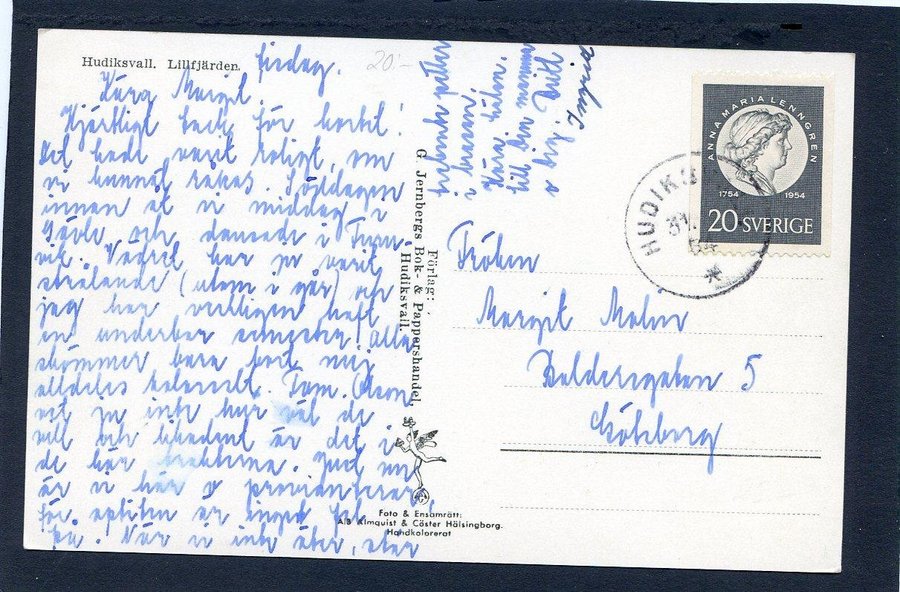 Hudiksvall. Lillfjärden.
20:-
fredag.
Kära Margit.
Hjärtligt tack för kortet!
Det hade varit roligt, om
vi kunnat råkas. Söndagen
innan åt vi middag i
Gävle och dansade i Furu-
vik. Vädret har ju varit
strålande (utom i går) och
jag har verkligen haft
en underbar semester! Alla
skämmer bara bort mej
alldeles kolossalt. Fam. Olson
vet ju inte hur väl de
vill och likadant är det i
de här trakterna. Just nu
är vi här o provianterar,
för aptiten är inget fel
på. När vi inte äter, eller
i bersån.
Kära hälsn.
till Din mamma
o Dig
Förlag:
G. Jernbergs Bok- & Pappershandel,
Hudiksvall.
Foto & Ensamrätt:
A/B Almquist & Cöster Hälsingborg.
Handkolorerat
ANNA MARIA LENNGREN
1754 1954
20 SVERIGE
HUDIKS
Fröken
Margit Malm
5
Göteborg